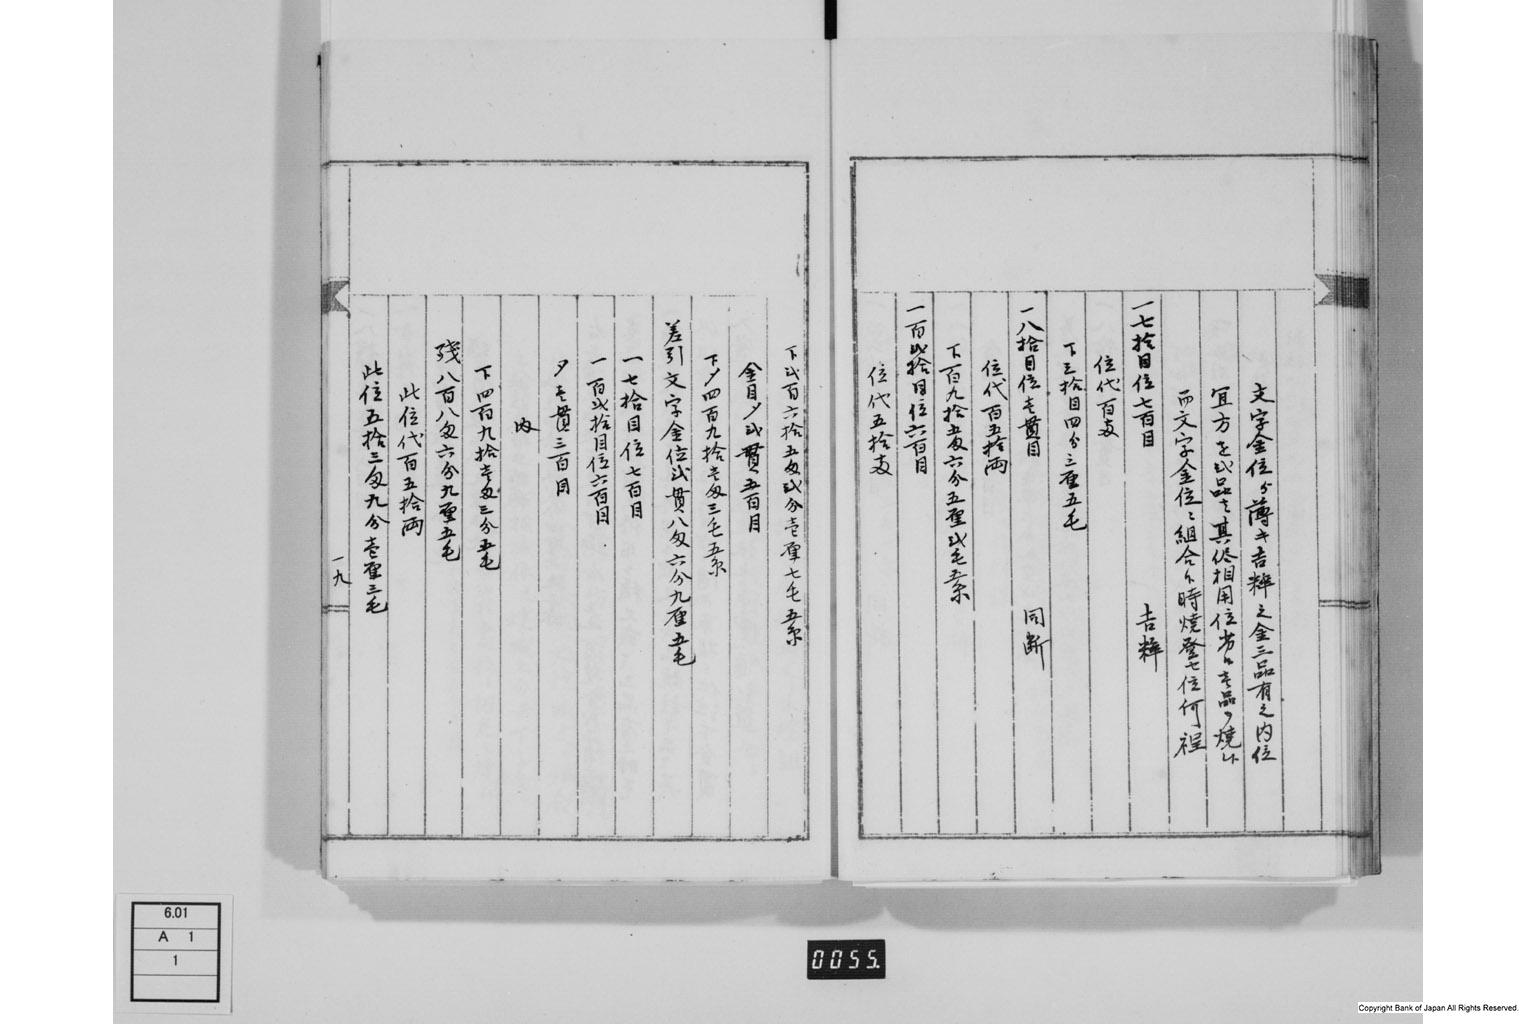 文字金位ゟ薄キ吉粋之金三品有之内位
宜方を弐品ハ其侭相用位劣候壱品ヲ焼候
而文字金位ニ組合候時焼登せ位何程
一七拾目位七百目 吉粋
位代百両
下三拾目四分三厘五毛
一八拾目位壱貫目 同断
位代百五拾両
下百九拾五匁六分五厘弐毛五糸
一百弐拾目位六百目
位代五拾両
下弐百六拾五匁弐分壱厘七毛五糸
金目〆弐貫五百目
下〆四百九拾壱匁三毛五糸
差引文字金位弐貫八匁六分九厘五毛
一七拾目位七百目
一百弐拾目位六百目
〆壱貫三百目
内
下四百九拾壱匁三分五毛
残八百八匁六分九厘五毛
此位代百五拾両
此位五拾三匁九分壱厘三毛
一九
6.01
A 1
1
0055.
Copyright Bank of Japan All Rights Reserved.